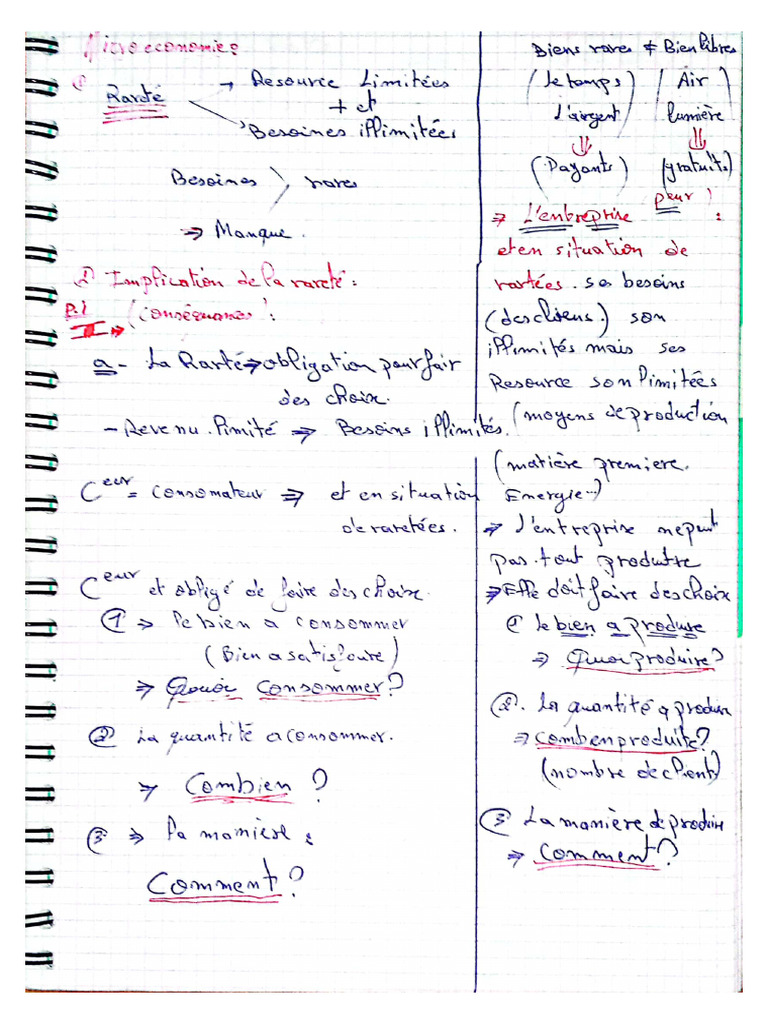 Microeconomie:
① Rareté → Resource Limitées
+ et
Besoines illimitées
Besoines > rares
⇒ Manque.
2) Implication de la rareté:
P.1 (Conséquances):
I⇒
a- La Rarté ⇒ obligation pour fair
des choix.
- Revenu limité ⇒ Besoins illimités.
Ceur = consomateur ⇒ et en situation
de raretées.
Ceur et obligé de faire des choix.
① ⇒ le bien a consommer
(Bien a satisfaire)
⇒ Quoi consommer?
② La quantité a consommer.
⇒ Combien?
③ ⇒ la manière:
Comment?
Biens rares ≠ Bien libres
(le temps) (Air)
l'argent lumière
⇓ ⇓
(Payants) (gratuits)
⇒ L'entreprise peur:
et en situation de
rartées. ses besoins
(des cliens.) son
illimités mais ses
Resource son limitées
(moyens de production
(matière premiere.
Energie..)
⇒ l'entreprise ne put
pas tout produire
⇒ Elle doit faire des choix
① le bien a produse
⇒ Quoi produire?
②. la quantité a produire
⇒ comben produite?
(nombre de client)
③ La manière de produire
⇒ Comment?